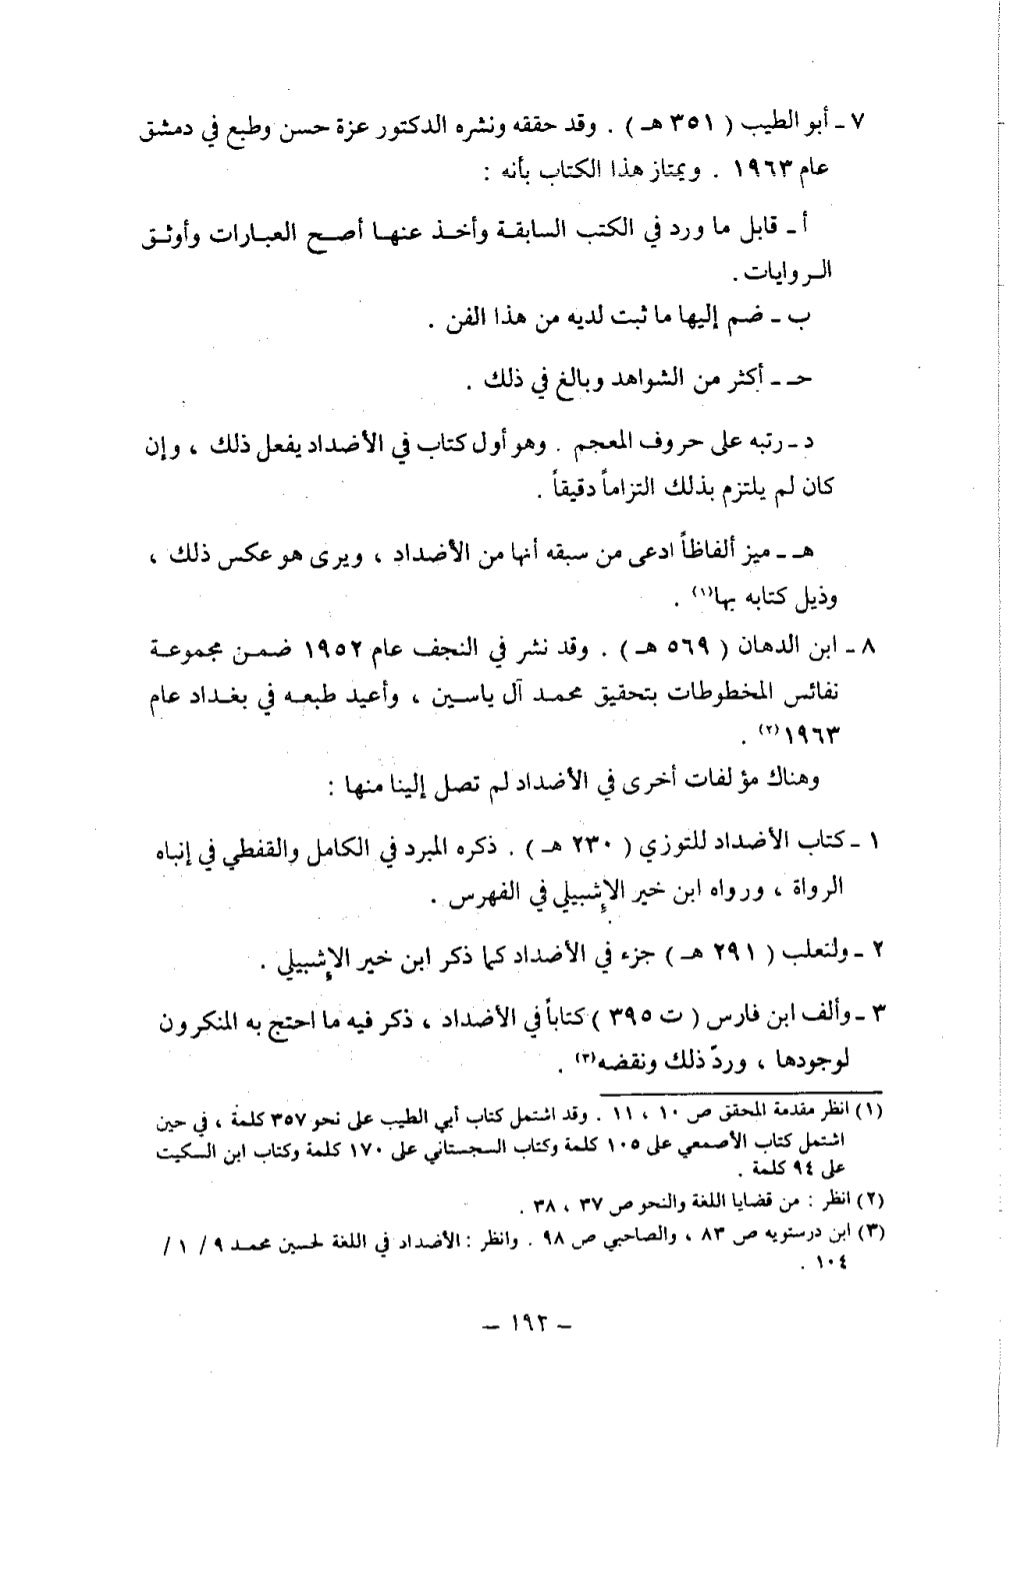 ٧ ـ أبو الطيب ( ٣٥١ هـ ) . وقد حققه ونشره الدكتور عزة حسن وطبع في دمشق
عام ١٩٦٣ . ويمتاز هذا الكتاب بأنه :
أ ـ قابل ما ورد في الكتب السابقة وأخذ عنها أصح العبارات وأوثق
الروايات .
ب ـ ضم إليها ما ثبت لديه من هذا الفن .
حـ ـ أكثر من الشواهد وبالغ في ذلك .
د ـ رتبه على حروف المعجم . وهو أول كتاب في الأضداد يفعل ذلك ، وإن
كان لم يلتزم بذلك التزاماً دقيقاً .
هـ ـ ميز ألفاظاً ادعى من سبقه أنها من الأضداد ، ويرى هو عكس ذلك ،
وذيل كتابه بها(١) .
٨ ـ ابن الدهان ( ٥٦٩ هـ ) . وقد نشر في النجف عام ١٩٥٢ ضمن مجموعة
نفائس المخطوطات بتحقيق محمد آل ياسين ، وأعيد طبعه في بغداد عام
١٩٦٣(٢) .
وهناك مؤلفات أخرى في الأضداد لم تصل إلينا منها :
١ ـ كتاب الأضداد للتوزي ( ٢٣٠ هـ ) . ذكره المبرد في الكامل والقفطي في إنباه
الرواة ، ورواه ابن خير الإشبيلي في الفهرس .
٢ ـ ولثعلب ( ٢٩١ هـ ) جزء في الأضداد كما ذكر ابن خير الإشبيلي .
٣ ـ وألف ابن فارس ( ت ٣٩٥ ) كتاباً في الأضداد ، ذكر فيه ما احتج به المنكرون
لوجودها ، وردّ ذلك ونقضه(٣) .
(١) انظر مقدمة المحقق ص ١٠ ، ١١ . وقد اشتمل كتاب أبي الطيب على نحو ٣٥٧ كلمة ، في حين
اشتمل كتاب الأصمعي على ١٠٥ كلمة وكتاب السجستاني على ١٧٠ كلمة وكتاب ابن السكيت
على ٩٤ كلمة .
(٢) انظر : من قضايا اللغة والنحو ص ٣٧ ، ٣٨ .
(٣) ابن درستويه ص ٨٣ ، والصاحبي ص ٩٨ . وانظر : الأضداد في اللغة لحسين محمد ٩ / ١ /
١٠٤ .
– ١٩٢ –